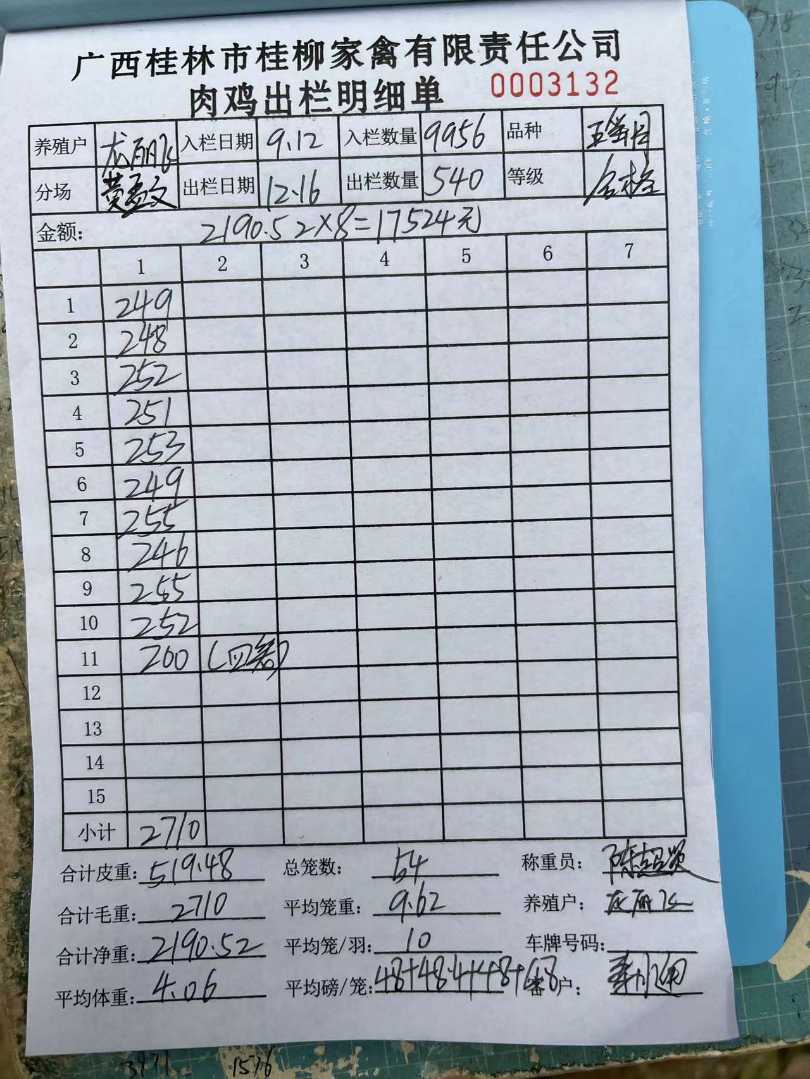 广西桂林市桂柳家禽有限责任公司
肉鸡出栏明细单 0003132
养殖户 龙丽飞 入栏日期 9.12 入栏数量 9956 品种
分场 出栏日期 12.16 出栏数量 540 等级 合格
金额: 2190.52×8=17524元
1 2 3 4 5 6 7
1 249
2 248
3 252
4 251
5 253
6 249
7 255
8 246
9 255
10 252
11 200 (四笼)
12
13
14
15
小计 2710
合计皮重: 519.48 总笼数: 54 称重员:
合计毛重: 2710 平均笼重: 9.62 养殖户: 龙丽飞
合计净重: 2190.52 平均笼/羽: 10 车牌号码:
平均体重: 4.06 平均磅/笼: 48+48.4+48+48 客户: